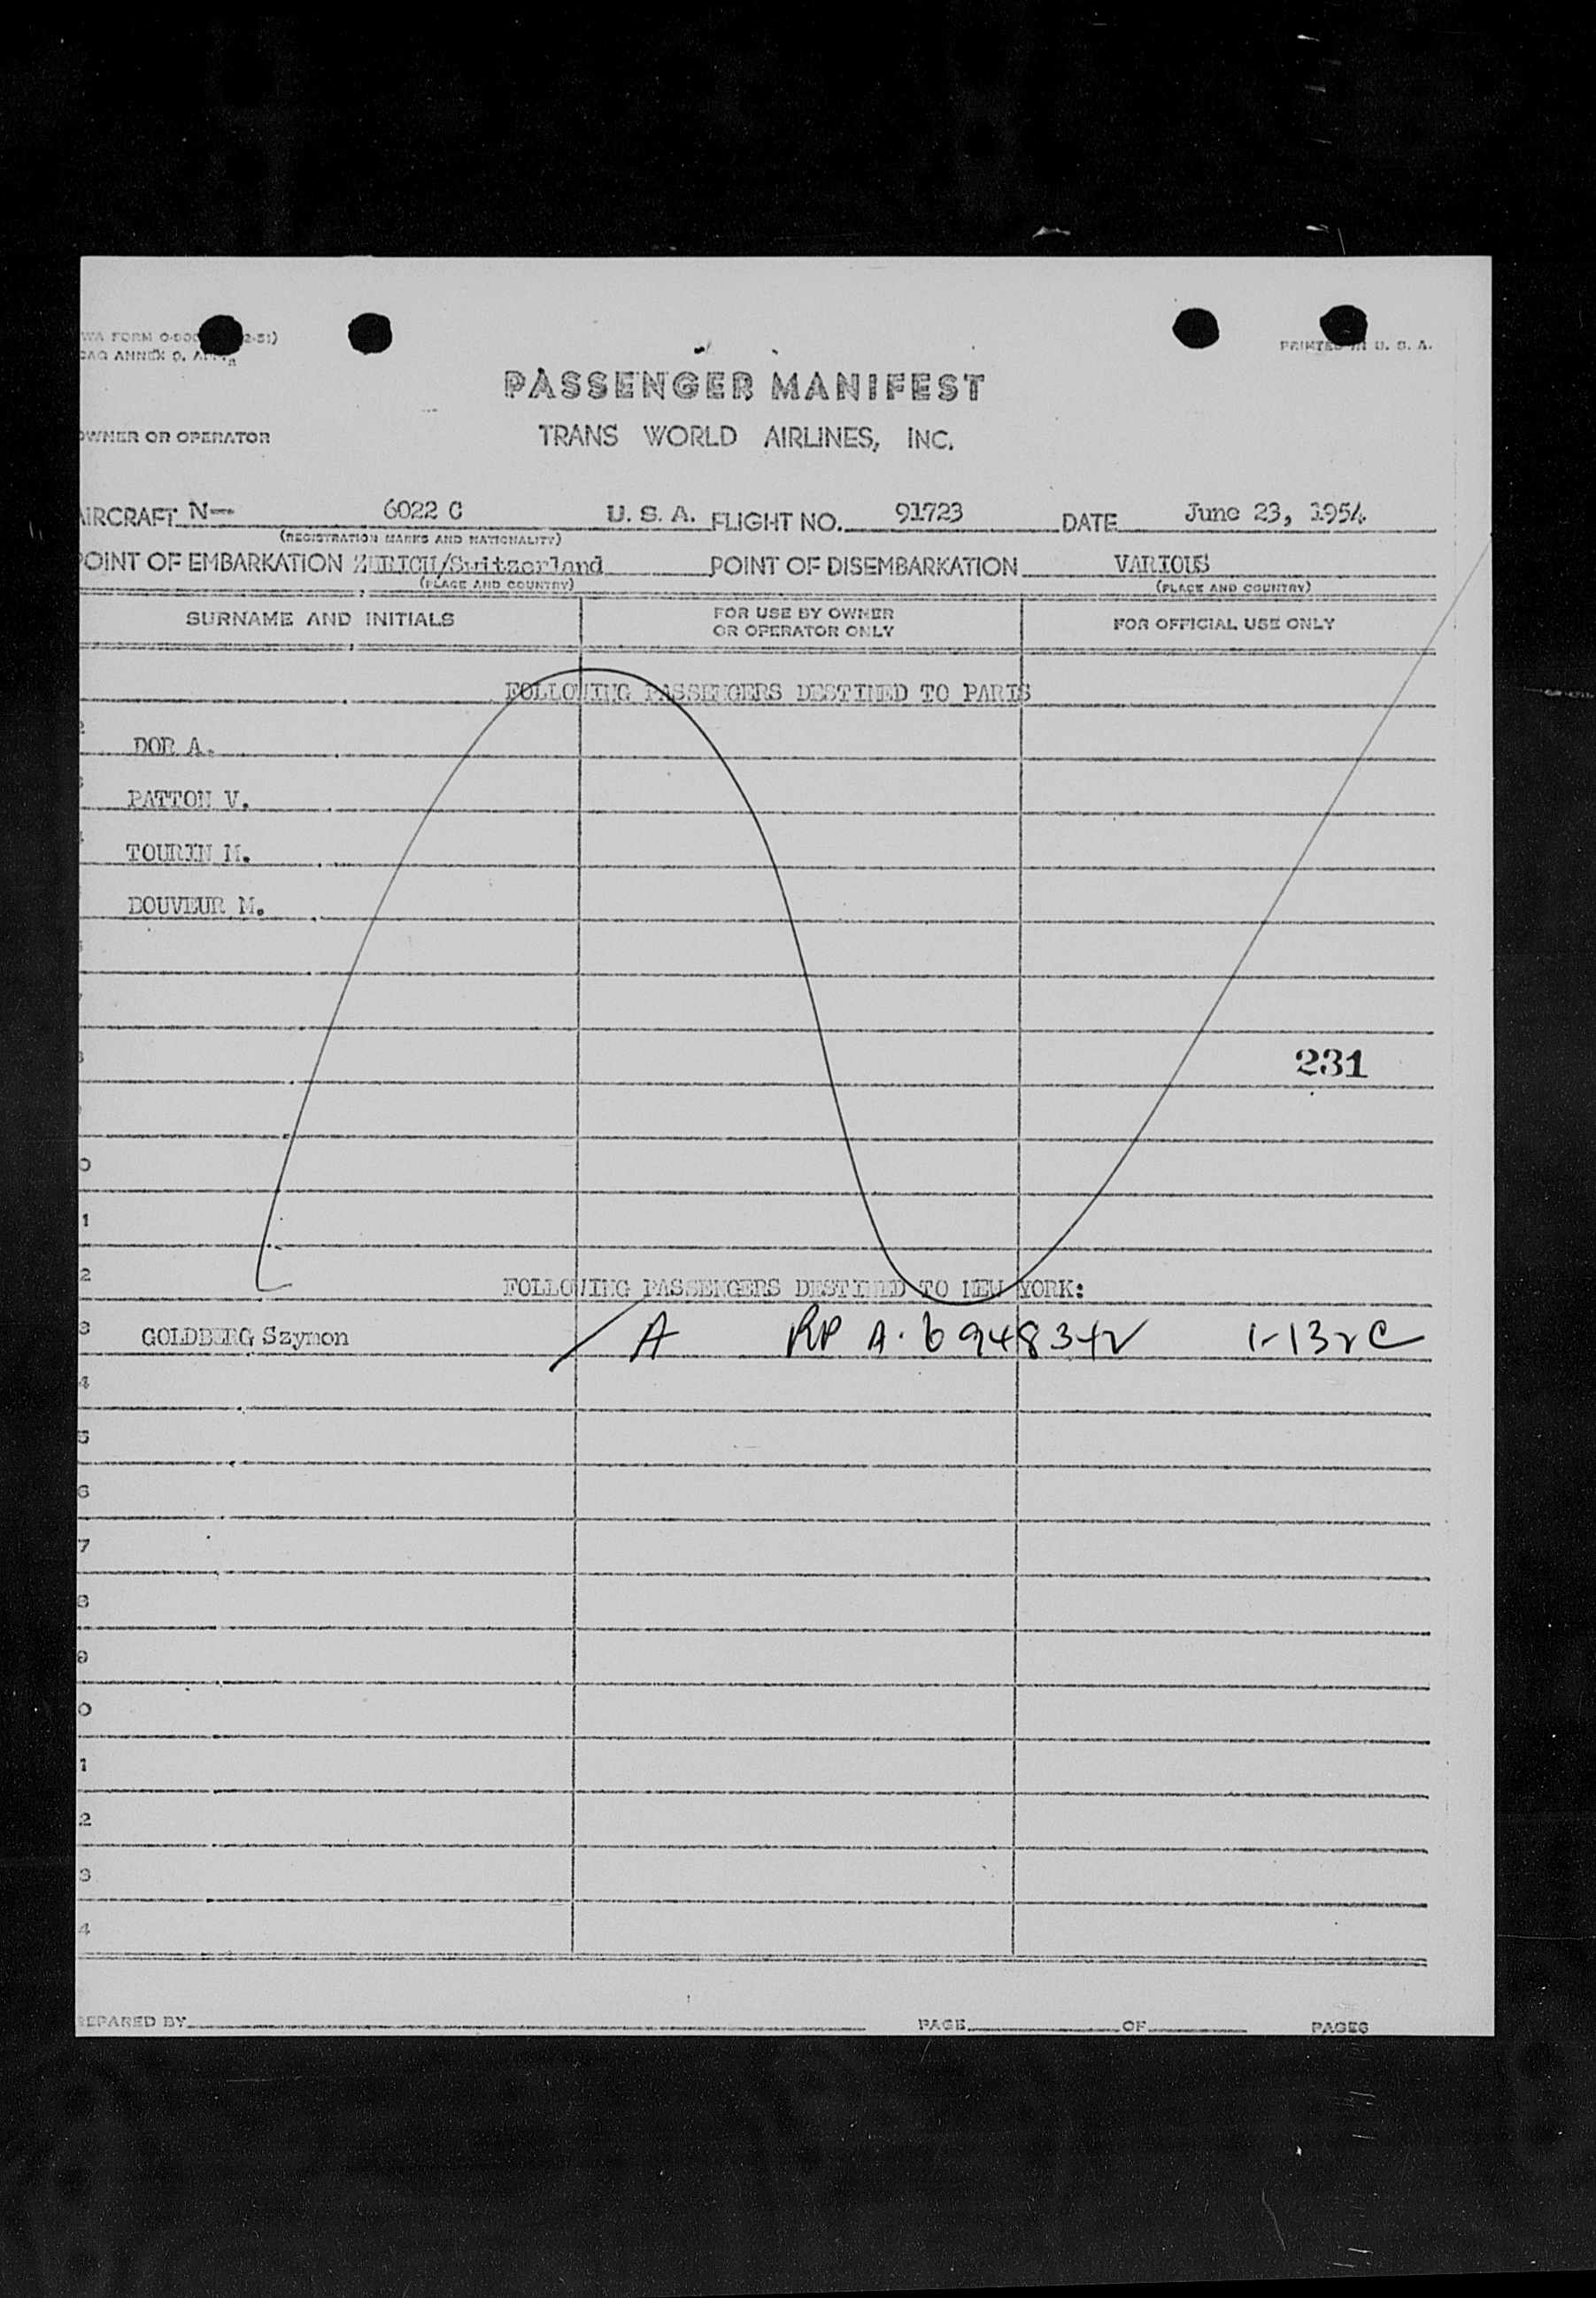 WA FORM O-
CAO ANNEX 9,
PRINTED IN U. S. A.
PASSENGER MANIFEST
OWNER OR OPERATOR
TRANS WORLD AIRLINES, INC.
AIRCRAFT N- 6022 C U. S. A. FLIGHT NO. 91723 DATE June 23, 1954
(REGISTRATION MARKS AND NATIONALITY)
POINT OF EMBARKATION ZURICH/Switzerland POINT OF DISEMBARKATION VARIOUS
(PLACE AND COUNTRY) (PLACE AND COUNTRY)
SURNAME AND INITIALS
FOR USE BY OWNER
OR OPERATOR ONLY
FOR OFFICIAL USE ONLY
FOLLOWING PASSENGERS DESTINED TO PARIS
DOR A.
PATTON V.
TOURIN M.
M.
231
0
1
2 FOLLOWING PASSENGERS DESTINED TO NEW YORK:
3 GOLDBERG Szymon A RP A. 6948342 1-132C
4
5
6
7
8
9
0
1
2
3
4
REPARED BY PAGE OF PAGES